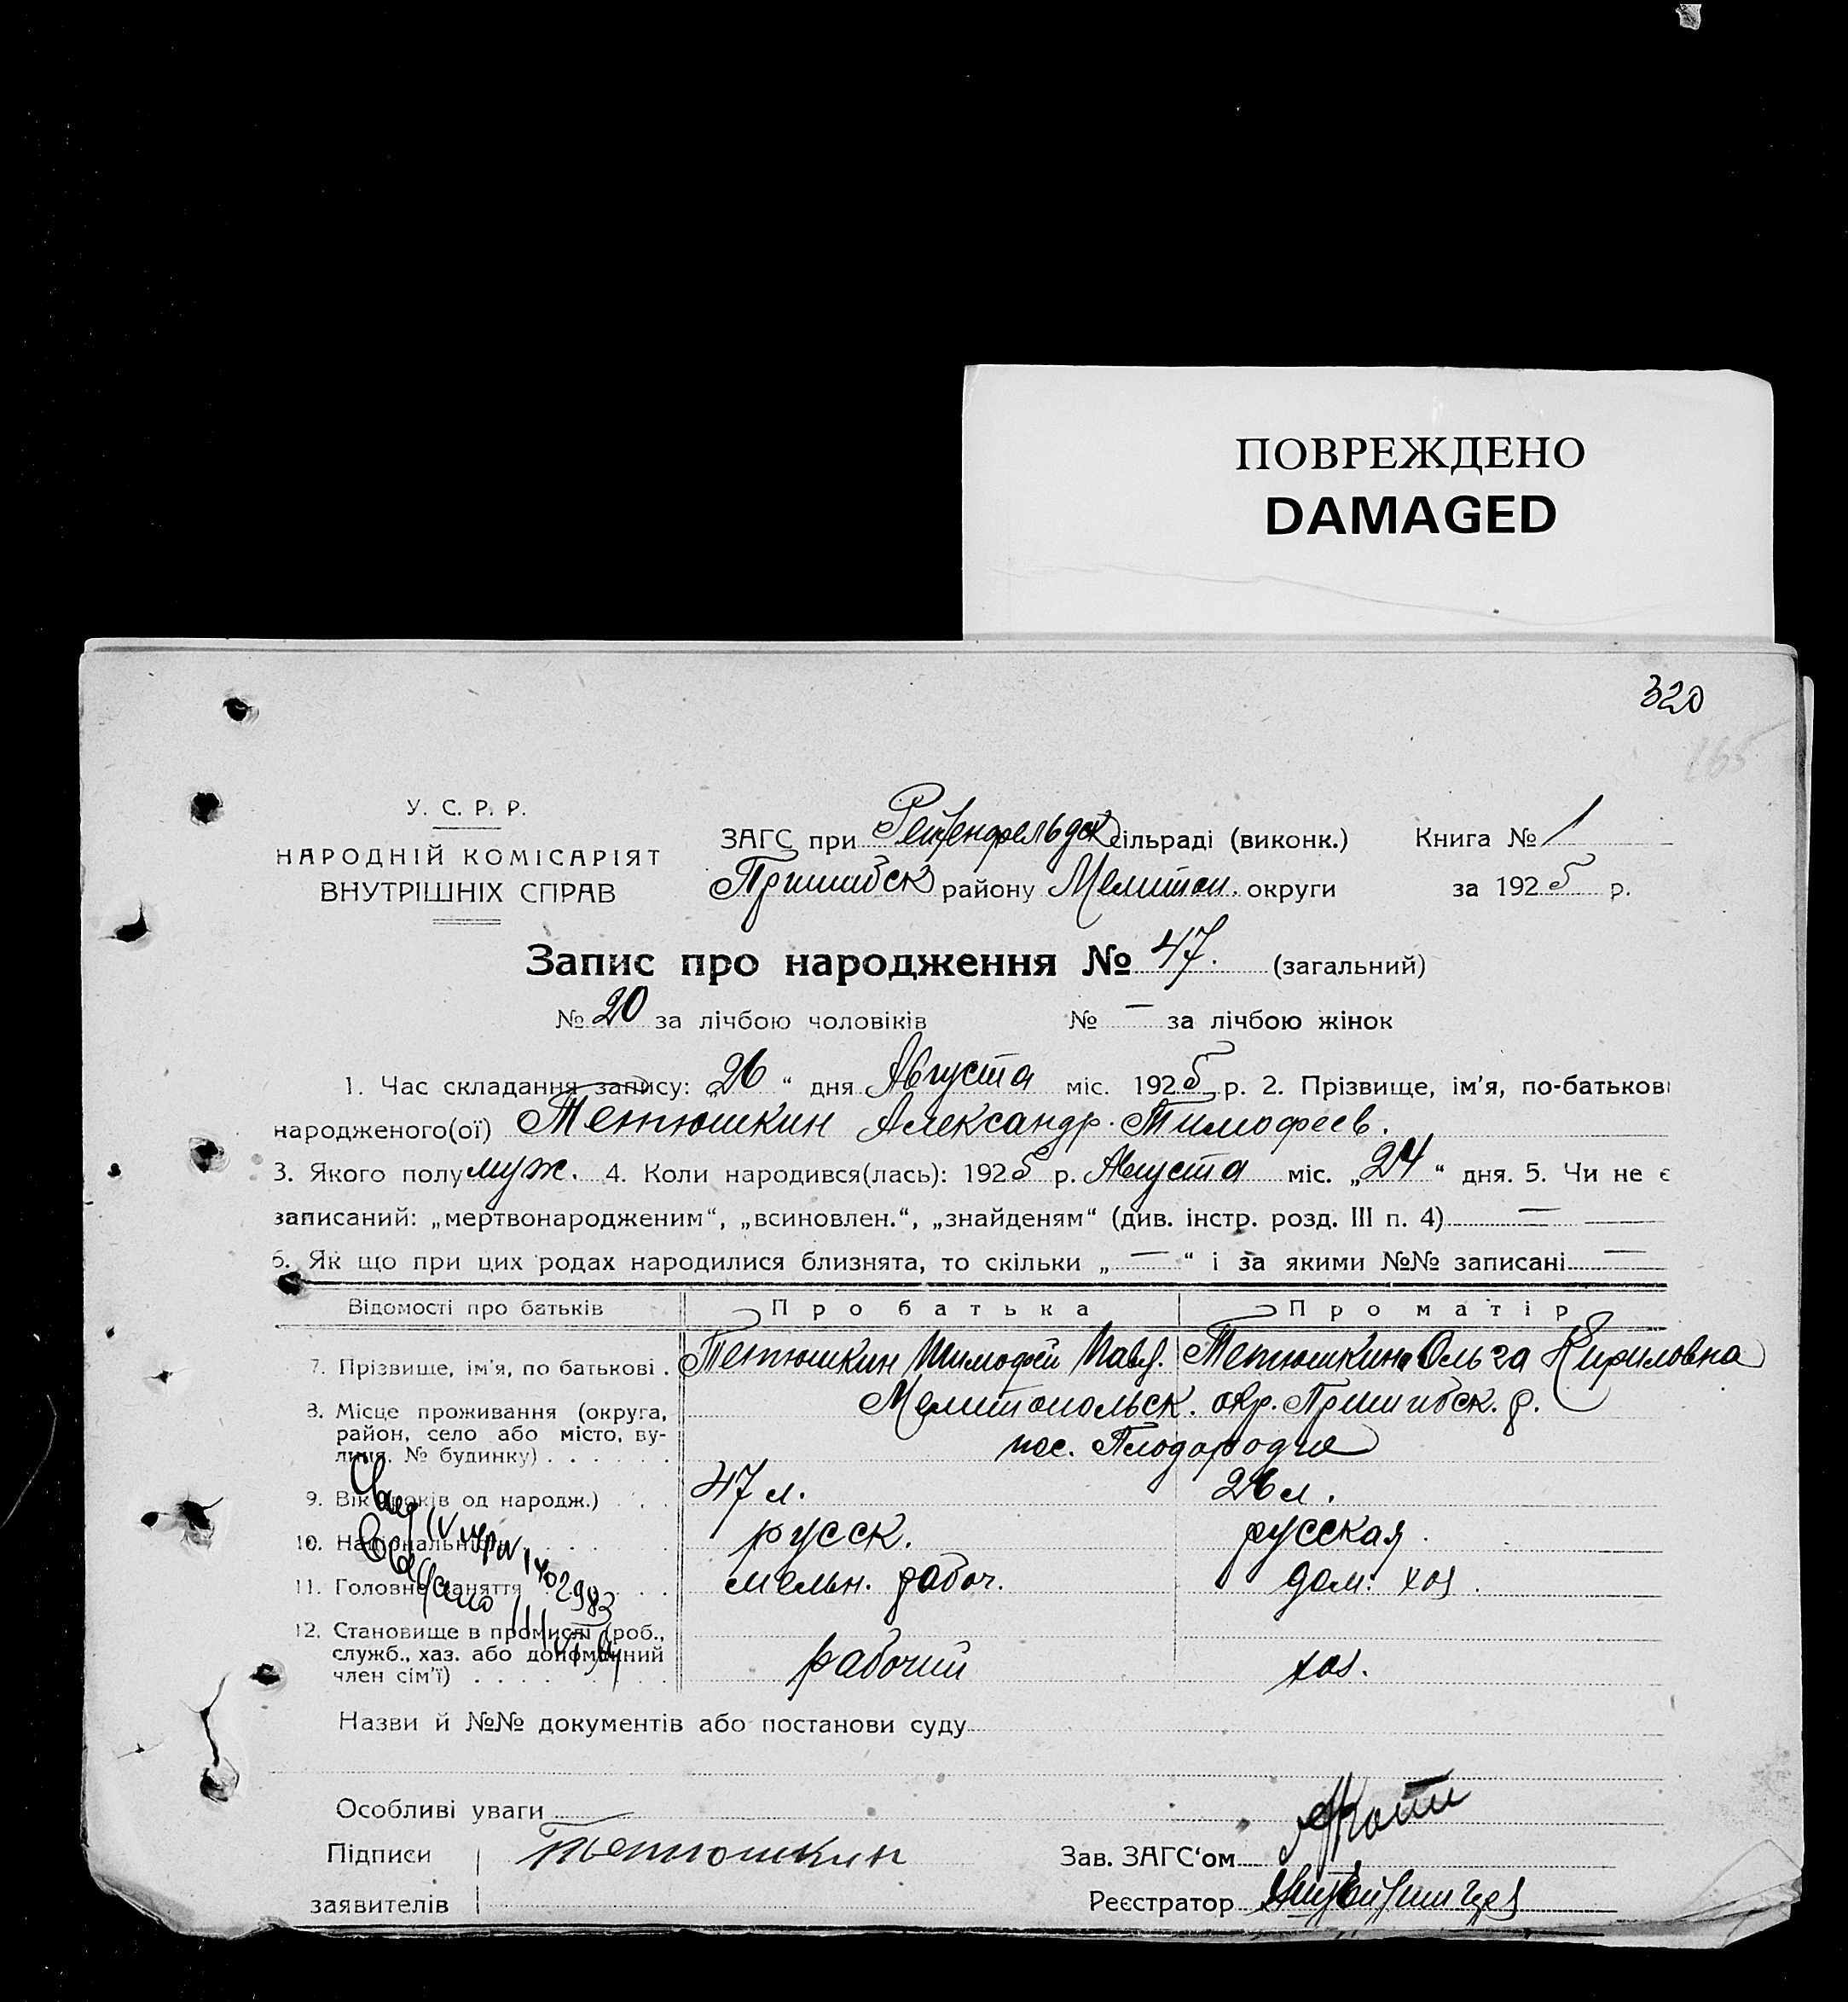 ПОВРЕЖДЕНО
DAMAGED
320
165
У. С. Р. Р.
НАРОДНІЙ КОМІСАРІЯТ
ВНУТРІШНІХ СПРАВ
ЗАГС при Рейхенфельдск сільраді (виконк.) Книга № 1
Пришибск району Мелитоп. округи за 1925 р.
Запис про народження № 47. (загальний)
№ 20 за лічбою чоловіків № — за лічбою жінок
1. Час складання запису: „26“ дня Августа міс. 1925 р. 2. Прізвище, ім'я, по-батькові
народженого(ої) Тетюшкин Александр Тимофеев.
3. Якого полу муж. 4. Коли народився(лась): 1925 р. Августа міс. „24“ дня. 5. Чи не є
записаний: „мертвонародженим“, „всиновлен.“, „знайденям“ (див. інстр. розд. III п. 4) —
6. Як що при цих родах народилися близнята, то скільки „—“ і за якими №№ записані —
Відомості про батьків Про батька Про матір
7. Прізвище, ім'я, по батькові . Тетюшкин Тимофей Павл. Тетюшкина Ольга Кириловна
8. Місце проживання (округа, Мелитопольск. окр. Пришибск. р.
район, село або місто, ву-
лиця, № будинку) . . . . . . пос. Плодородие
9. Вік (років од народж.) . . . 47 л. 26 л.
10. Національність . . . . . русск. русская.
11. Головне заняття . . . . мельн. рабоч. дом. хоз.
12. Становище в промислі (роб.,
служб., хаз. або допоможний
член сім'ї) . . . . . . . рабочий хоз.
Назви й №№ документів або постанови суду
Особливі уваги
Підписи Тетюшкин Зав. ЗАГС'ом
заявителів Реєстратор